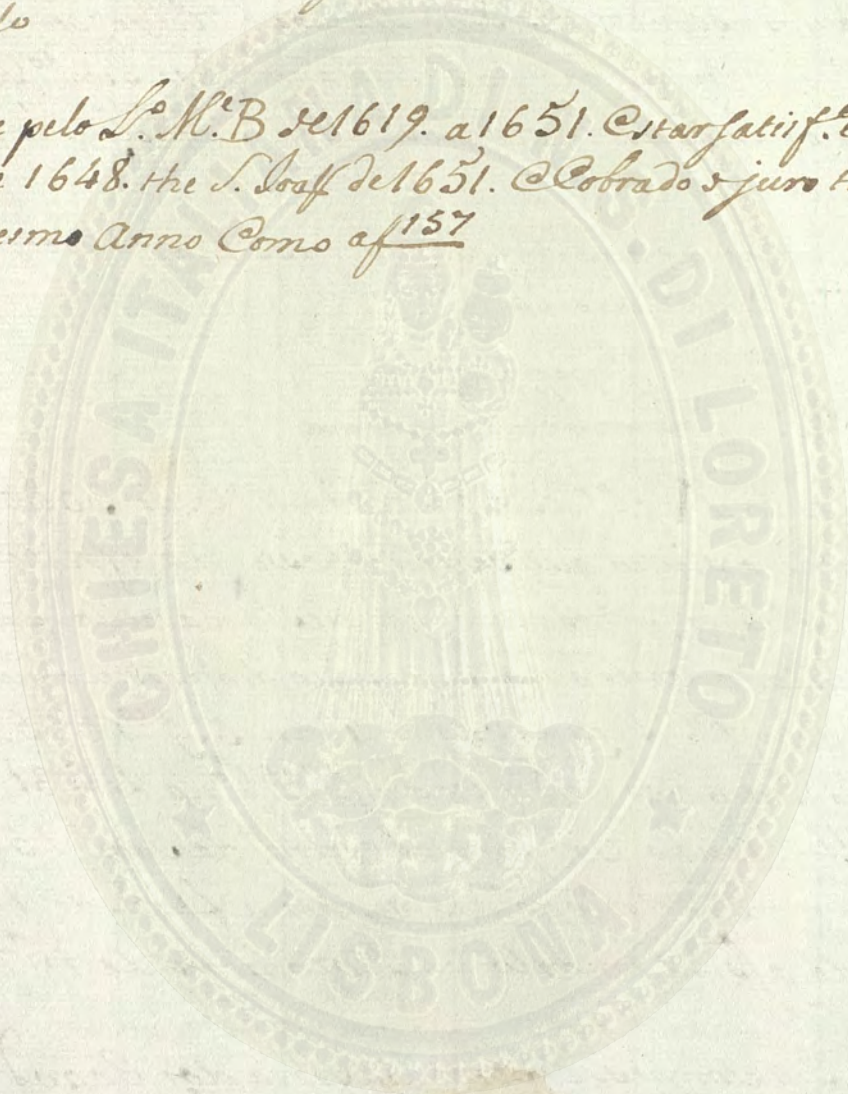 lo
pelo L.º M.e B de 1619. a 1651. E star satisf.
1648. the S. Joaõ de 1651. E Cobrado o juro
esmo Anno Como a f 157
CHIESA ITALIANA DI N.S. DI LORETO
LISBONA